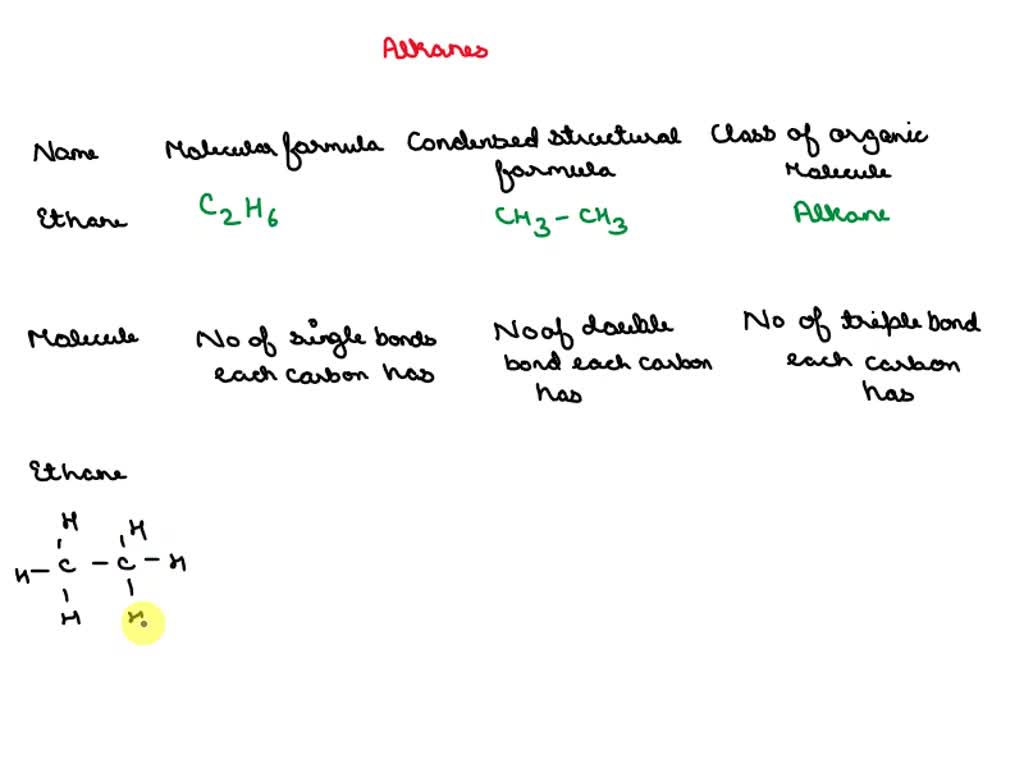 Alkanes
Name Molecular formula Condensed structural formula Class of organic Molecule
Ethane C2H6 CH3 - CH3 Alkane
Molecule No of single bonds each carbon has No of double bond each carbon has No of triple bond each carbon has
Ethane
H H
H - C - C - H
H H